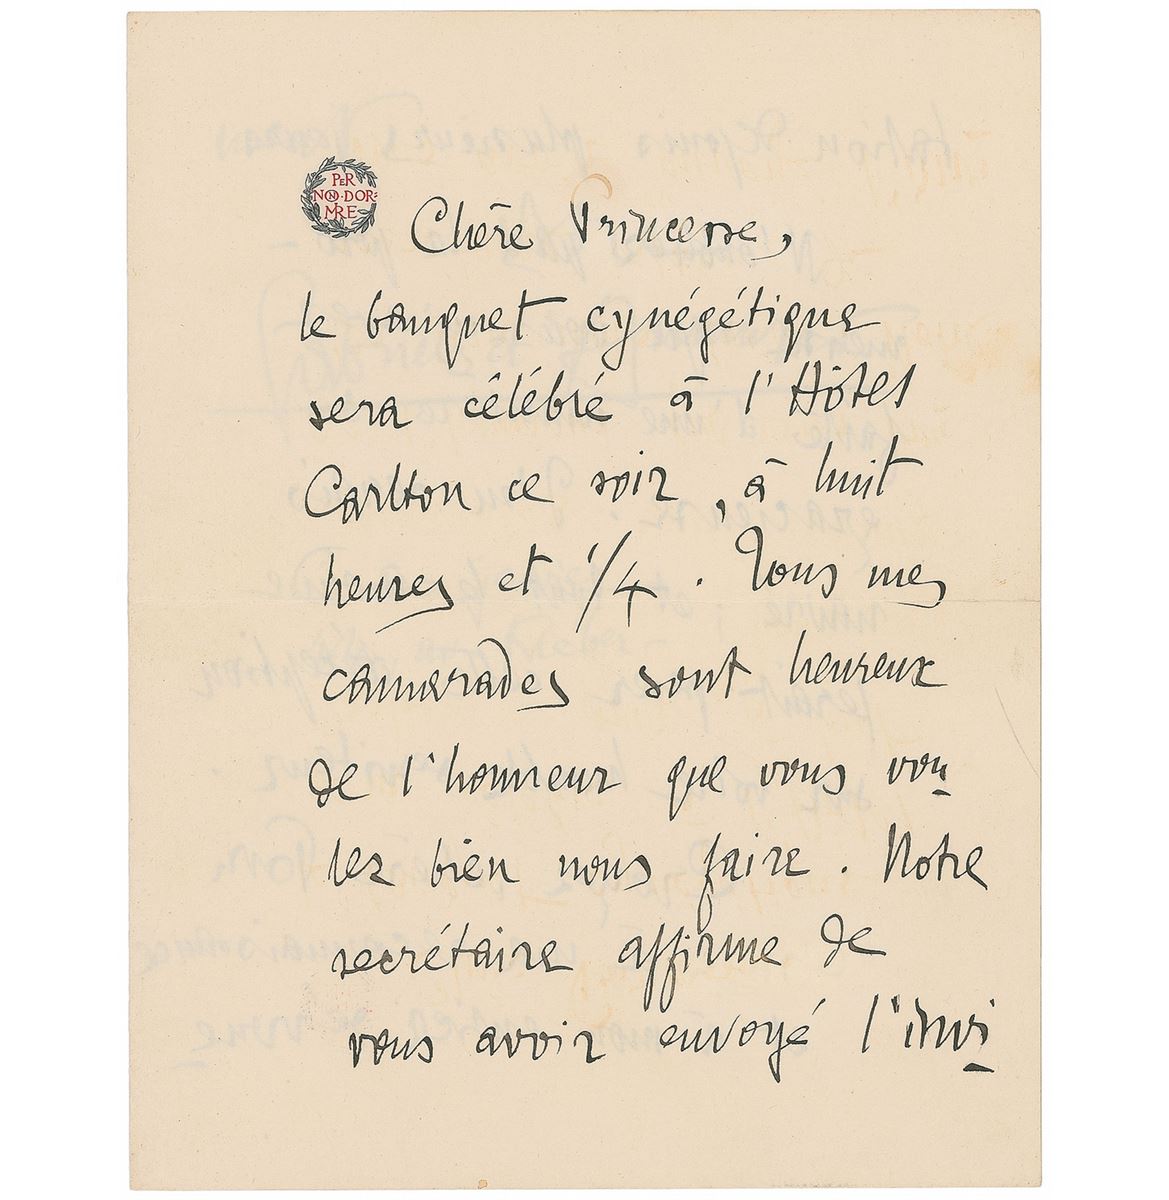 PER
NON·DOR=
MIRE
Chère Princesse,
le banquet cynégétique
sera célébré à l'Hôtel
Carlton ce soir, à huit
heures et 1/4. Tous mes
camarades sont heureux
de l'honneur que vous vou
lez bien nous faire. Notre
secrétaire affirme de
vous avoir envoyé l'invi